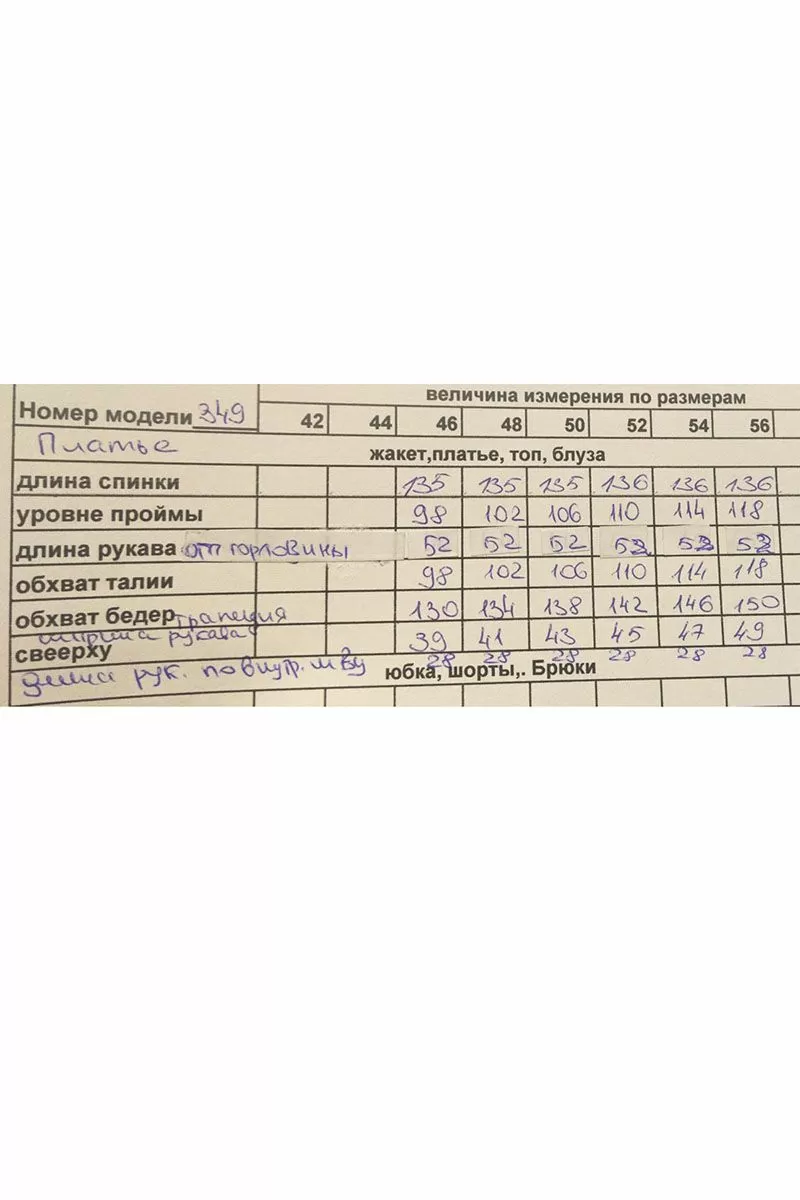 величина измерения по размерам
Номер модели 349 42 44 46 48 50 52 54 56
Платье жакет,платье, топ, блуза
длина спинки 135 135 135 136 136 136
уровне проймы 98 102 106 110 114 118
длина рукава от горловины 52 52 52 53 53 53
обхват талии 98 102 106 110 114 118
обхват бедер трапеция 130 134 138 142 146 150
ширина рукава
свеерху 39 41 43 45 47 49
длина рук. по внутр. шву 28 28 28 28 28 28
юбка, шорты,. Брюки